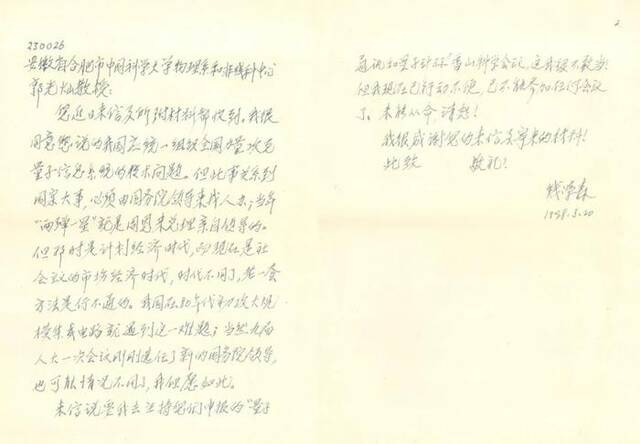 230026
安徽省合肥市中国科学大学物理系和非线科中心
郭光灿教授:
您近日来信及所附材料都收到。我很
同意您说的我国应统一组织全国力量攻克
量子信息系统的技术问题。但此事关系到
国家大事,必须由国务院领导来成人去;当年
“两弹一星”就是周恩来总理亲自领导的。
但那时是计划经济时代,而现在是社
会主义的市场经济时代,时代不同了,老一套
方法是行不通的。我国在80年代初攻大规
模集成电路就遇到这一难题;当然九届
人大一次会议刚刚选任了新的国务院领导,
也可能情况不同了,我但愿如此。
来信说要我去主持您们申报的“量子
2
通讯和量子计算”香山科学会议,这我很不敢当。
但我现在已行动不便,已不能参加任何会议
了。未能从命,请恕!
我很感谢您的来信及寄来的材料!
此致 敬礼!
钱学森
1998.5.20